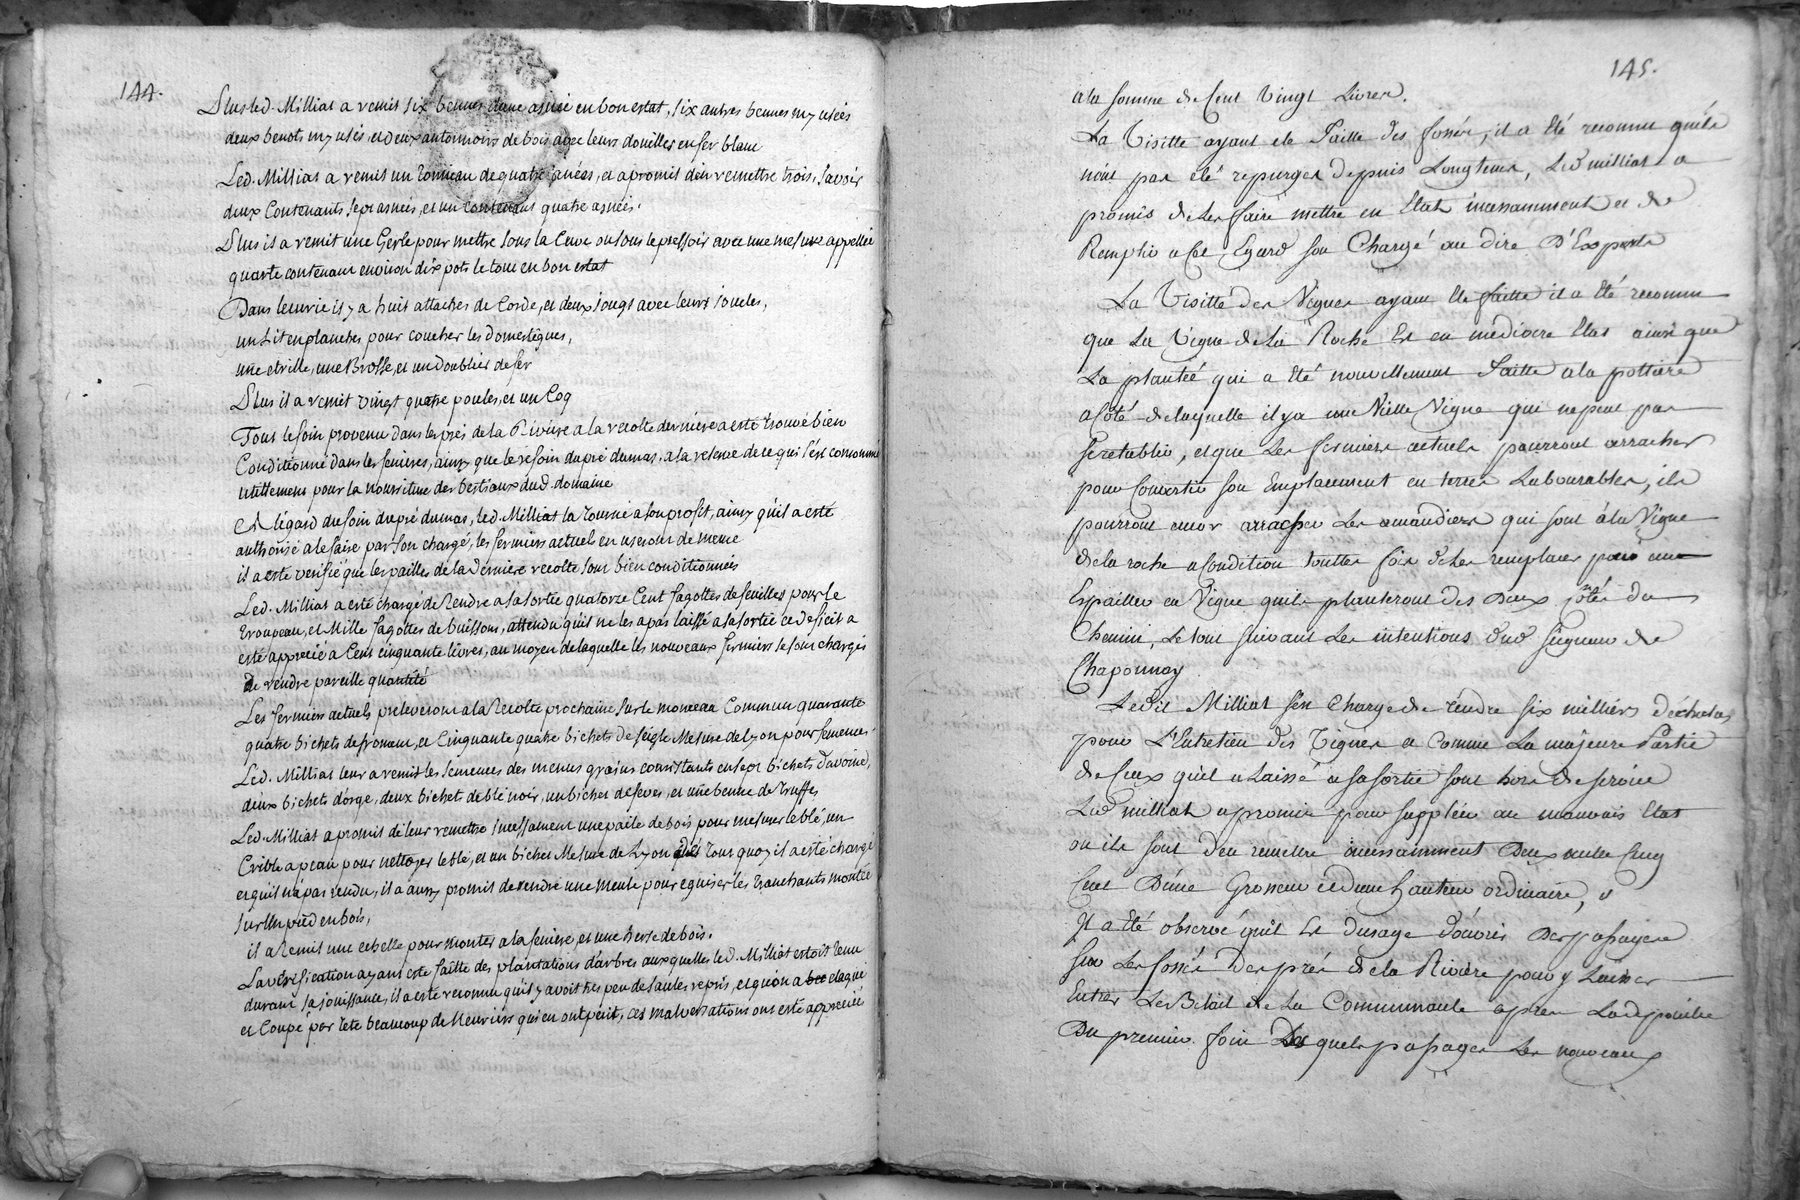 144.
Plus led. Milliat a remit six bennes d'une asnée en bon estat, six autres bennes my usées
deux benots my usés, et deux antonnoirs de bois avec leurs douilles en fer blanc
Led. Milliat a remit un tonneau de quatre asnées, et a promit d'en remettre trois, savoir
deux contenants sept asnées, et un contenant quatre asnées.
Plus il a remit une Gerle pour mettre sous la Cuve ou sous le pressoir avec une mesure appellée
quarte contenant environ dix pots le tout en bon estat
Dans lecurie il y a huit attaches de Corde, et deux jougs avec leurs joucles,
un Lit en planches pour coucher les domestiques,
une etrille, une Brosse, et un doublier de fer
Plus il a remit vingt quatre poules, et un Coq
Tout le foin provenu dans les prés de la Riviere a la recolte derniere a esté trouvé bien
Conditionné dans les fenieres, ainsy que le refoin du pré dumas, a la reserve de ce qui s'est consommé
utillement pour la nourriture des bestiaux dud. domaine
A légard du foin du pré dumas, led. Milliat la tourné a son profit, ainsy qu'il a esté
authorisé a le faire par son chargé, les fermiers actuel en useront de meme
il a esté verifié que les pailles de la derniere recolte sont bien conditionnées
Led. Milliat a esté chargé de Rendre a sa sortie quatorze Cent fagottes de feuilles pour le
troupeau, et Mille fagottes de buissons, attendu qu'il ne les a pas laissé a sa sortie ce deficit a
esté apprecié a Cent cinquante livres, au moyen de laquelle les nouveaux fermiers se sont chargés
de rendre pareille quantité
Les fermiers actuels preleveront a la Recolte prochaine sur le monceau Commun quarante
quatre bichets de froment, et Cinquante quatre bichets de seigle Mesure de Lyon pour semences.
Led. Milliat leur a remit les semences des menus grains consistants en sept bichets d'avoine,
deux bichets d'orge, deux bichets de blé noir, un bichet de feves, et une benne de truffes
Led. Milliat a promit de leur remettre incessament une paile de bois pour mesurer le blé, un
Crible a peau pour nettoyer le blé, et un bichet Mesure de Lyon de tout quoy il a esté chargé
et qu'il n'a pas rendu, il a aussy promit de rendre une meule pour eguiser les tranchants montée
sur un pied en bois,
il a Remit une echelle pour monter a la feniere, et une herse de bois.
La verification ayant esté faitte des plantations d'arbres auxquelles led. Milliat estoit tenu
durant sa jouissance, il a esté reconnu qu'il y avoit tres peu de saules repris, et qu'on a elagué
et Coupé par tete beaucoup de Meuriers qui en ont perit, ces malversations ont esté appreciée
145.
a la somme de Cent Vingt Livres.
La Visitte ayant ete Faitte des fossés, il a été reconnu quils
nont pas été repurger depuis Longtems, Led milliat a
promis de les faire mettre en Etat incessamment et de
Remplir a cet Egard son Chargé au dire D'Experts
La Visitte des Vignes ayant ete faitte il a été reconnu
que La Vigne de La Roche Est en mediocre Etat ainsi que
La plantéé qui a été nouvellement Faitte a la pottiere
a Coté de laquelle il y a une Vielle Vigne qui ne peut pas
se retablir, et que Les fermiers actuels pourront arracher
pour Convertir son Emplacement en terres Labourables, ils
pourront encor arracher Les amandiers qui sont à la Vigne
de la roche a Condition toutes fois de les remplacer par une
Espallier en Vigne quils planteront des Deux côtés du
Chemin, Le tout suivant Les intentions dud seigneur de
Chaponnay
Ledit Milliat s'en Charge de rendre six milliers déchalas
pour L'Entretien des Vignes et Comme La majeure Partie
de Ceux quil a Laissé a sa sortie sont hors de service
Led milliat a promis pour suppléer au mauvais Etat
ou ils sont d'en remettre incessamment Deux mille Cinq
Cent D'une Grosseur et d'une hauteur ordinaire,
Il a été observé quil Est d'usage d'ouvrir Des passages
sur Les fossés des prés de la Riviere pour y Laisser
Entrer Les Betail de La Communauté apres La dépouille
Du premier foin Des quels passages Les nouveaux